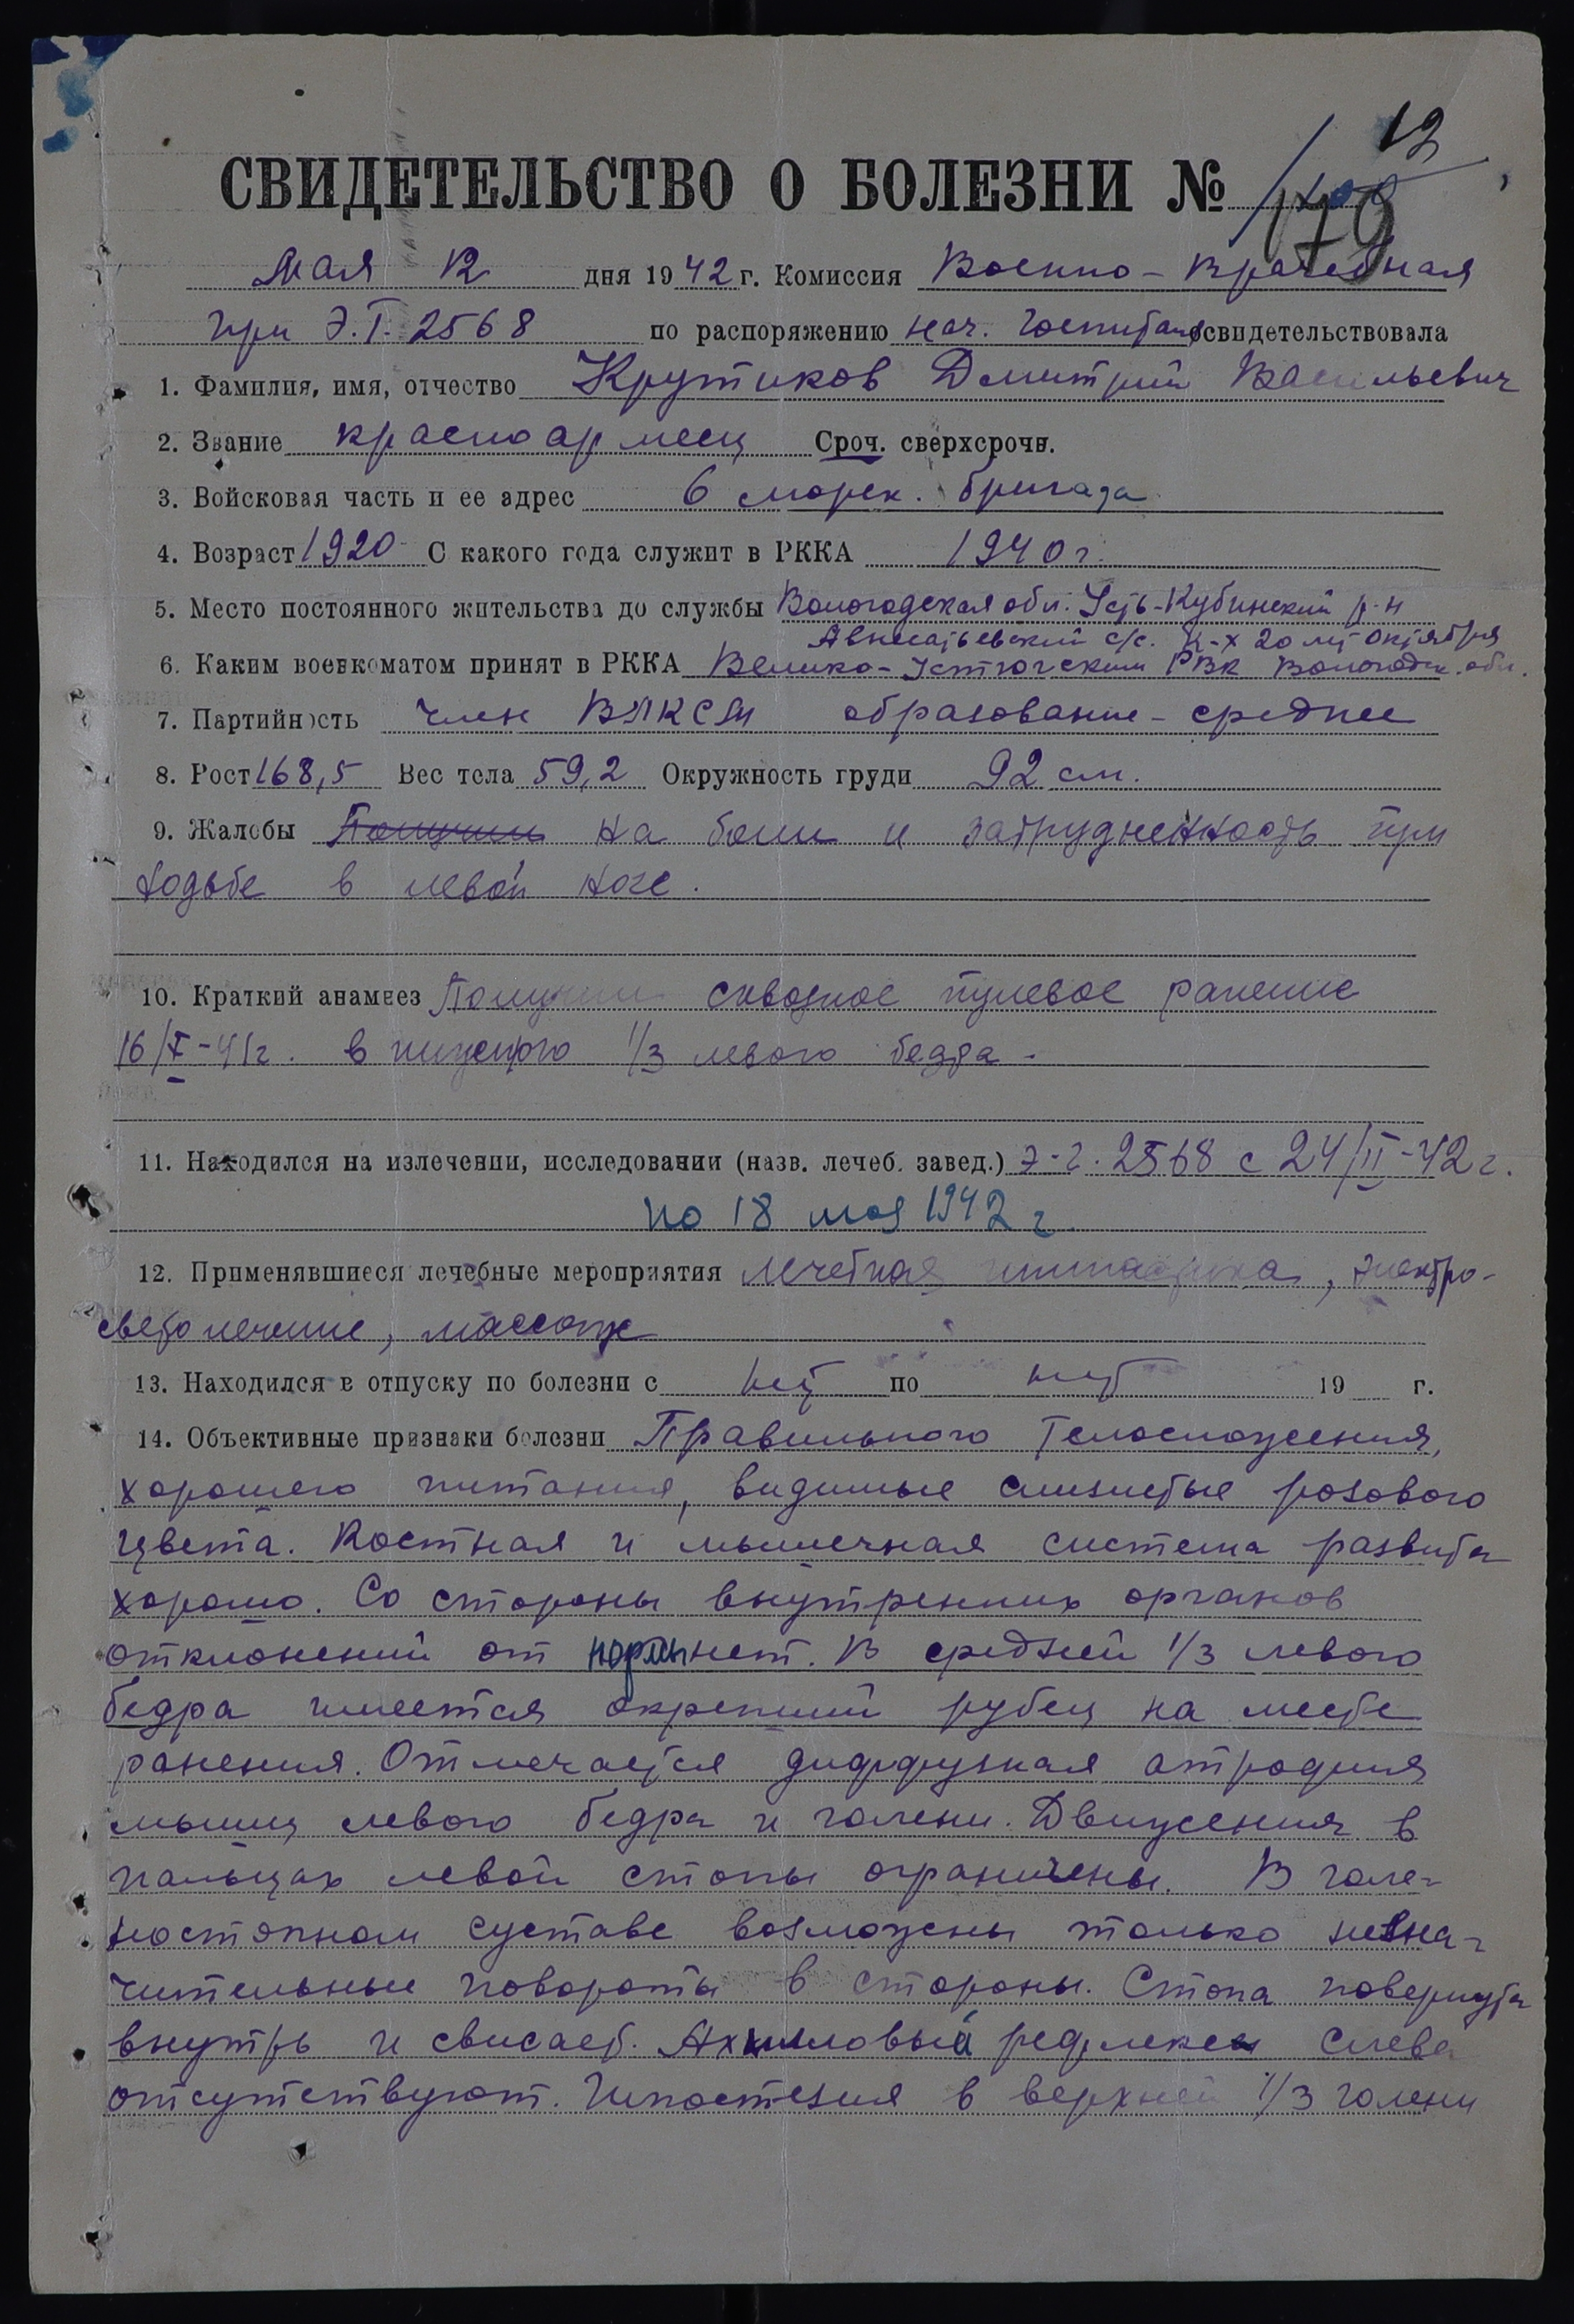 12
СВИДЕТЕЛЬСТВО О БОЛЕЗНИ № 179
Мая 12 дня 1942 г. Комиссия Военно-врачебная
при Э.Г. 2568 по распоряжению нач. госпиталя освидетельствовала
1. Фамилия, имя, отчество Крутиков Дмитрий Васильевич
2. Звание красноармеец Сроч. сверхсрочн.
3. Войсковая часть и ее адрес 6 морск. бригада
4. Возраст 1920 С какого года служит в РККА 1940 г.
5. Место постоянного жительства до службы Вологодская обл. Усть-Кубинский р-н
с/с. к-х 20 лет Октября
6. Каким военкоматом принят в РККА Велико-Устюгским РВК Вологодск. обл.
7. Партийность член ВЛКСМ образование - среднее
8. Рост 168,5 Вес тела 59,2 Окружность груди 92 см.
9. Жалобы Получил на боли и затрудненность при
ходьбе в левой ноге.
10. Краткий анамнез Получил сквозное пулевое ранение
16/X-41г. в нижнюю 1/3 левого бедра.
11. Находился на излечении, исследовании (назв. лечеб. завед.) э-г. 2568 с 24/II-42 г.
по 18 мая 1942 г.
12. Применявшиеся лечебные мероприятия лечебная гимнастика, электро-
светолечение, массаж
13. Находился в отпуску по болезни с нет по нет 19 г.
14. Объективные признаки болезни Правильного телосложения,
хорошего питания, видимые слизистые розового
цвета. Костная и мышечная система развита
хорошо. Со стороны внутренних органов
отклонений от нормы нет. В средней 1/3 левого
бедра имеется окрепший рубец на месте
ранения. Отмечается диффузная атрофия
мышц левого бедра и голени. Движения в
пальцах левой стопы ограничены. В голе-
ностопном суставе возможны только незна-
чительные повороты в стороны. Стопа повернута
внутрь и свисает. Ахилловый рефлекс слева
отсутствуют. Гипостезия в верхней 1/3 голени